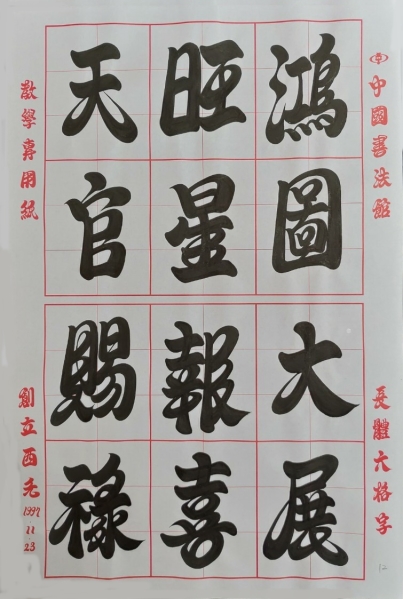 中國書法館
長體六格字
鴻圖大展
旺星報喜
天官賜祿
教學專用紙
創立西元
1997
11
23
12